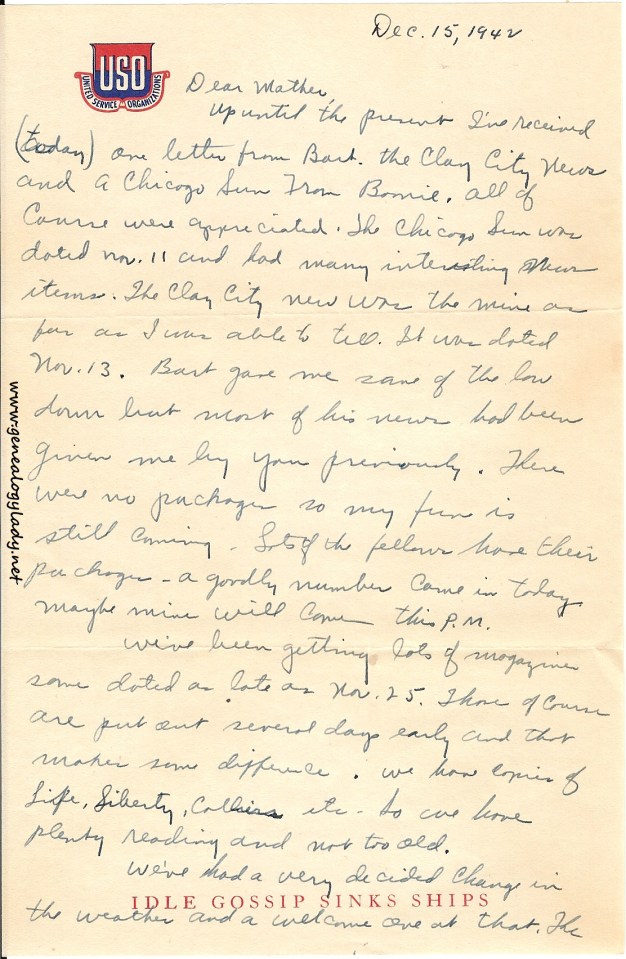 Dec. 15, 1942
USO
UNITED SERVICE ORGANIZATIONS
Dear Mother,
Up until the present I've received
(today) one letter from Bart. the Clay City News
and a Chicago Sun From Bonnie. all of
Course were appreciated. The Chicago Sun was
dated Nov. 11 and had many interesting News
items. The Clay City new was the mine as
far as I was able to tell. It was dated
Nov. 13. Bart gave me some of the low
down but most of his news had been
given me by you previously. There
were no packages so my fun is
still coming. Lots of the fellows have their
packages - a goodly number came in today
maybe mine will come this P.M.
We've been getting lots of magazines
some dated as late as Nov. 25. Those of course
are put out several days early and that
makes some difference. we have copies of
Life, Liberty, Colliers etc - So we have
plenty reading and not too old.
We've had a very decided change in
IDLE GOSSIP SINKS SHIPS
the weather and a welcome one at that. The
www.genealogylady.net